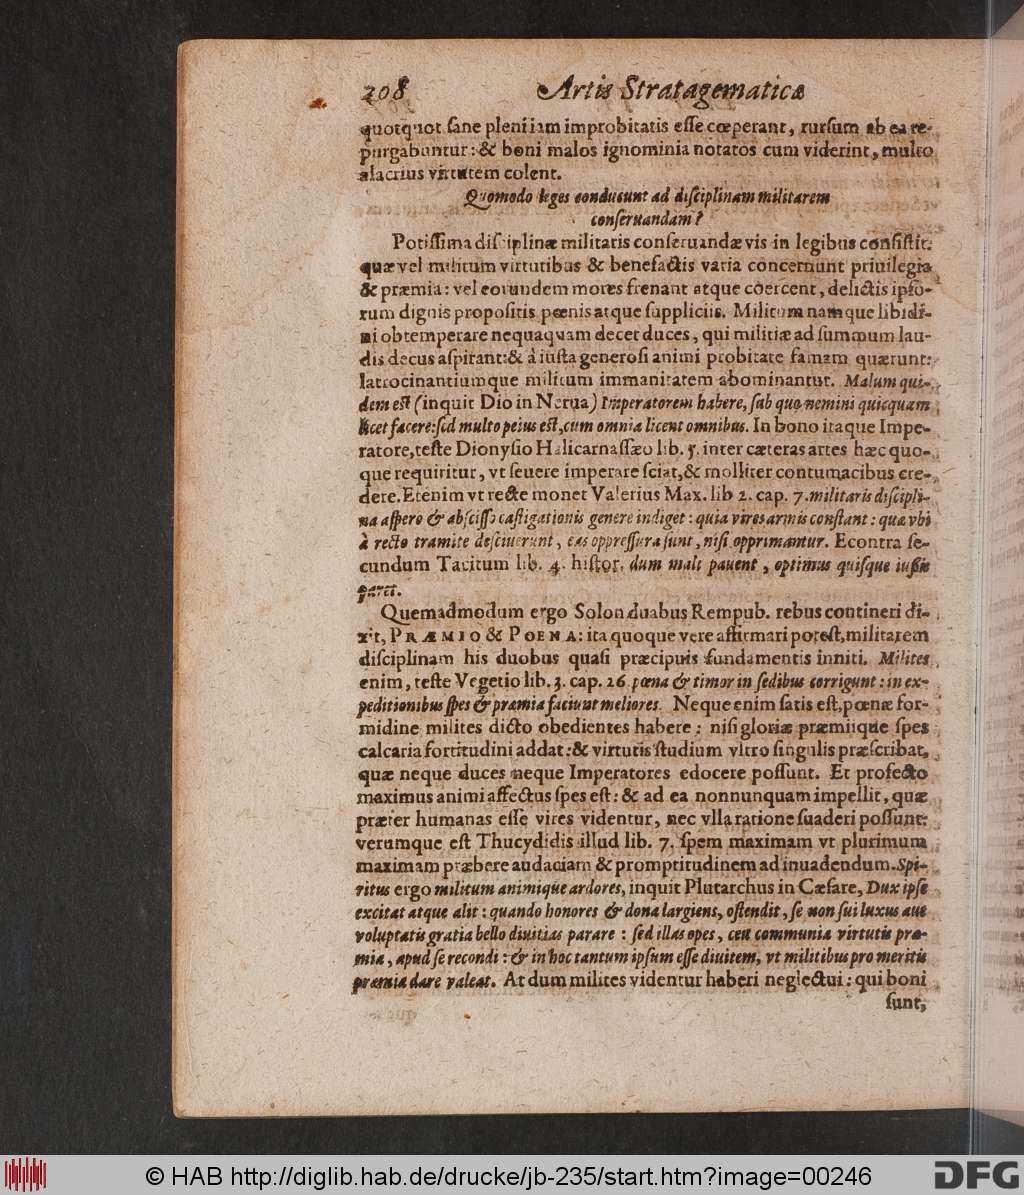 208 Artis Stratagematicæ
quotquot sane pleni iam improbitatis esse cœperant, rursum ab ea re-
purgabuntur: & boni malos ignominia notatos cum viderint, multo
alacrius virtutem colent.
Quomodo leges conducunt ad disciplinam militarem
conseruandam?
Potissima disciplinæ militaris conseruandæ vis in legibus consistit:
quæ vel militum virtutibus & benefactis varia concernunt priuilegia
& præmia: vel eorundem mores frenant atque coërcent, delictis ipso-
rum dignis propositis pœnis atque suppliciis. Militum namque libidi-
ni obtemperare nequaquam decet duces, qui militiæ ad summum lau-
dis decus aspirant: & à iusta generosi animi probitate famam quærunt:
latrocinantiumque militum immanitatem abominantur. Malum qui-
dem est (inquit Dio in Nerua) Imperatorem habere, sub quo nemini quicquam
licet facere: sed multo peius est, cum omnia licent omnibus. In bono itaque Impe-
ratore, teste Dionysio Halicarnassæo lib. 5. inter cæteras artes hæc quo-
que requiritur, vt seuere imperare sciat, & molliter contumacibus cre-
dere. Etenim vt recte monet Valerius Max. lib 2. cap. 7. militaris discipli-
na aspero & absciso castigationis genere indiget: quia vires armis constant: quæ vbi
à recto tramite desciuerunt, eas oppressura sunt, nisi opprimantur. Econtra se-
cundum Tacitum lib. 4. histor. dum mali pauent, optimus quisque iussis
paret.
Quemadmodum ergo Solon duabus Rempub. rebus contineri di-
xit, PRÆMIO & POENA: ita quoque vere affirmari potest, militarem
disciplinam his duobus quasi præcipuis fundamentis inniti. Milites
enim, teste Vegetio lib. 3. cap. 26. pœna & timor in sedibus corrigunt: in ex-
peditionibus spes & præmia faciunt meliores. Neque enim satis est, pœnæ for-
midine milites dicto obedientes habere: nisi gloriæ præmiique spes
calcaria fortitudini addat: & virtutis studium vltro singulis præscribat,
quæ neque duces neque Imperatores edocere possunt. Et profecto
maximus animi affectus spes est: & ad ea nonnunquam impellit, quæ
præter humanas esse vires videntur, nec vlla ratione suaderi possunt:
verumque est Thucydidis illud lib. 7. spem maximam vt plurimum
maximam præbere audaciam & promptitudinem ad inuadendum. Spi-
ritus ergo militum animique ardores, inquit Plutarchus in Cæsare, Dux ipse
excitat atque alit: quando honores & dona largiens, ostendit, se non sui luxus aut
voluptatis gratia bello diuitias parare: sed illas opes, ceu communia virtutis præ-
mia, apud se recondi: & in hoc tantum ipsum esse diuitem, vt militibus pro meritis
præmia dare valeat. At dum milites videntur haberi neglectui: qui boni
sunt,
© HAB http://diglib.hab.de/drucke/jb-235/start.htm?image=00246
DFG